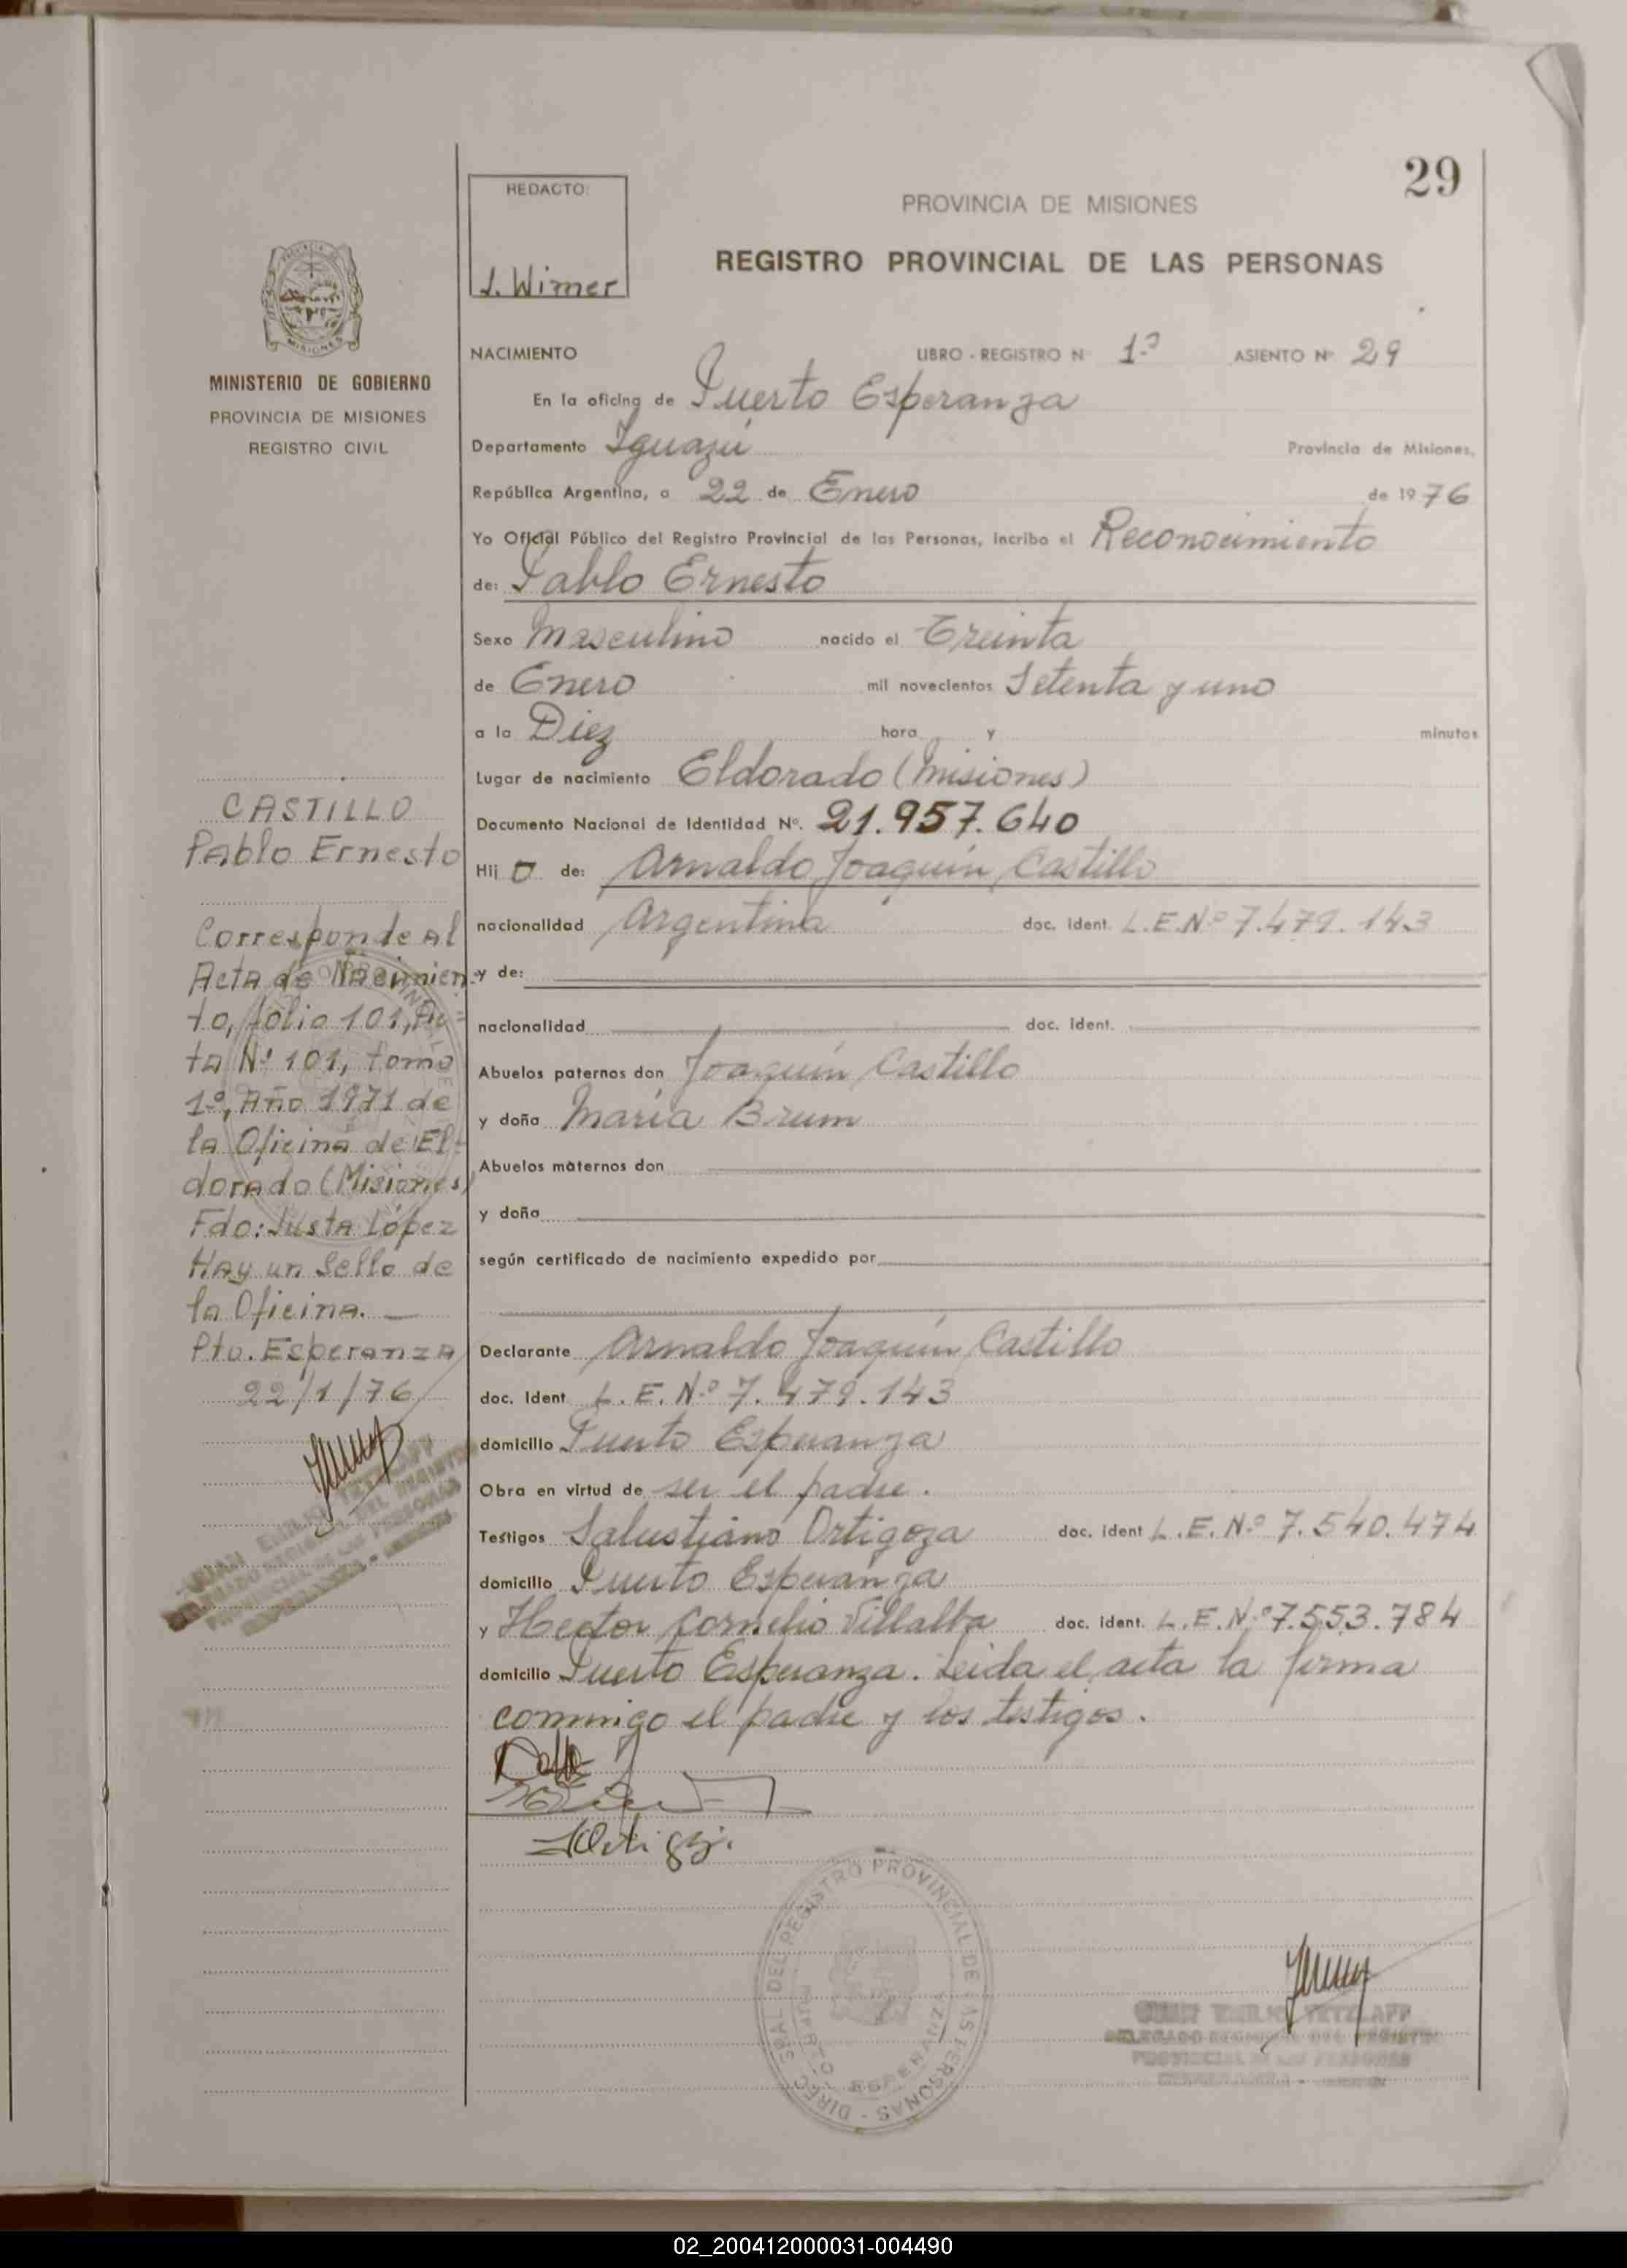 29
REDACTO:
J. Wimer
PROVINCIA DE MISIONES
REGISTRO PROVINCIAL DE LAS PERSONAS
MINISTERIO DE GOBIERNO
PROVINCIA DE MISIONES
REGISTRO CIVIL
CASTILLO
Pablo Ernesto
Corresponde Al
Acta de Nacimien-
to, folio 101, Ac=
ta Nº 101, tomo
1º, Año 1971 de
la Oficina de El-
dorado (Misiones)
Fdo: Justa López
Hay un Sello de
la Oficina. —
Pto. Esperanza
22/1/76
NACIMIENTO LIBRO - REGISTRO Nº 1º ASIENTO Nº 29
En la oficina de Puerto Esperanza
Departamento Iguazú Provincia de Misiones,
República Argentina, a 22 de Enero de 1976
Yo Oficial Público del Registro Provincial de las Personas, incribo el Reconocimiento
de: Pablo Ernesto
Sexo Masculino nacido el Treinta
de Enero mil novecientos Setenta y uno
a la Diez hora y minutos
Lugar de nacimiento Eldorado (Misiones)
Documento Nacional de Identidad Nº. 21.957.640
Hij o de: Arnaldo Joaquín Castillo
nacionalidad Argentina doc. ident. L.E.Nº 7.479.143
y de:
nacionalidad doc. ident.
Abuelos paternos don Joaquín Castillo
y doña María Brum
Abuelos maternos don
y doña
según certificado de nacimiento expedido por
Declarante Arnaldo Joaquín Castillo
doc. Ident L.E.Nº 7.479.143
domicilio Puerto Esperanza
Obra en virtud de ser el padre.
Testigos Salustiano Ortigoza doc. ident L.E.Nº 7.540.474
domicilio Puerto Esperanza
y Hector Cornelio Villalba doc. ident. L.E.Nº 7.553.784
domicilio Puerto Esperanza. Leida el acta la firma
conmigo el padre y los testigos.
DIREC. GRAL DEL REGISTRO PROVINCIAL DE LAS PERSONAS
PUERTO ESPERANZA
JUAN EMILIO TETZLAFF
DELEGADO REGIONAL DEL REGISTRO
PROVINCIAL DE LAS PERSONAS
02_200412000031-004490